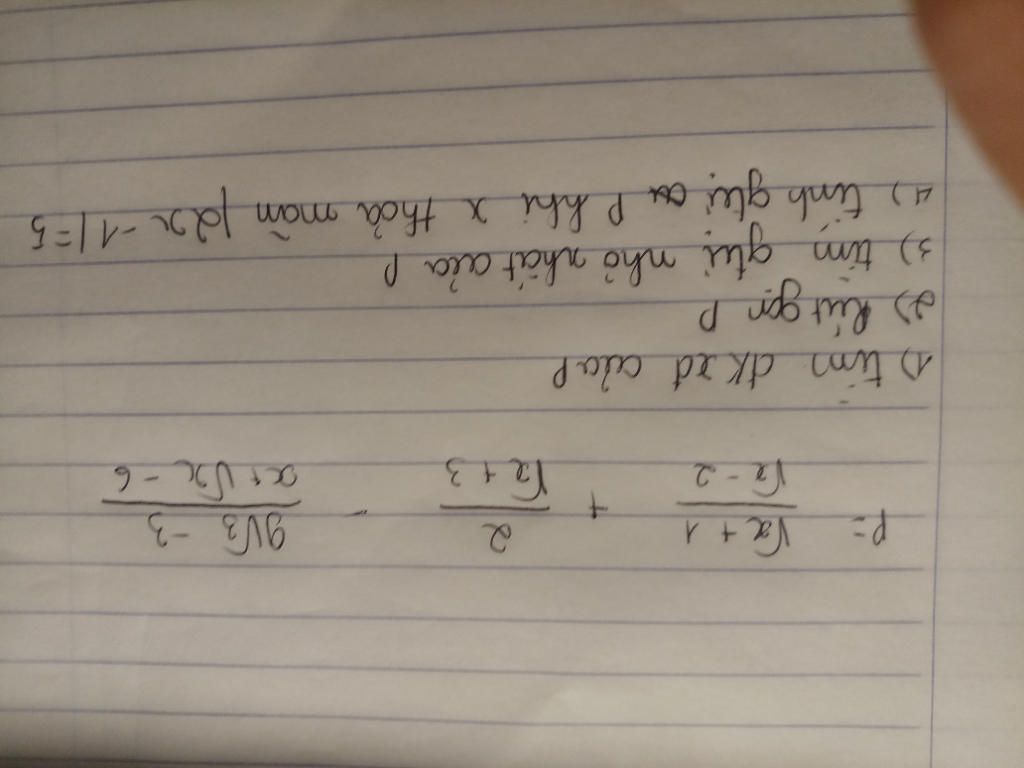 P = \frac{\sqrt{x} + 1}{\sqrt{x} - 2} + \frac{2}{\sqrt{x} + 3} - \frac{9\sqrt{x} - 3}{x + \sqrt{x} - 6}
1) tìm đkxđ của P
2) Rút gọn P
3) tìm gtri nhỏ nhất của P
4) tính gtrị P khi x thoả mãn |2x - 1| = 5